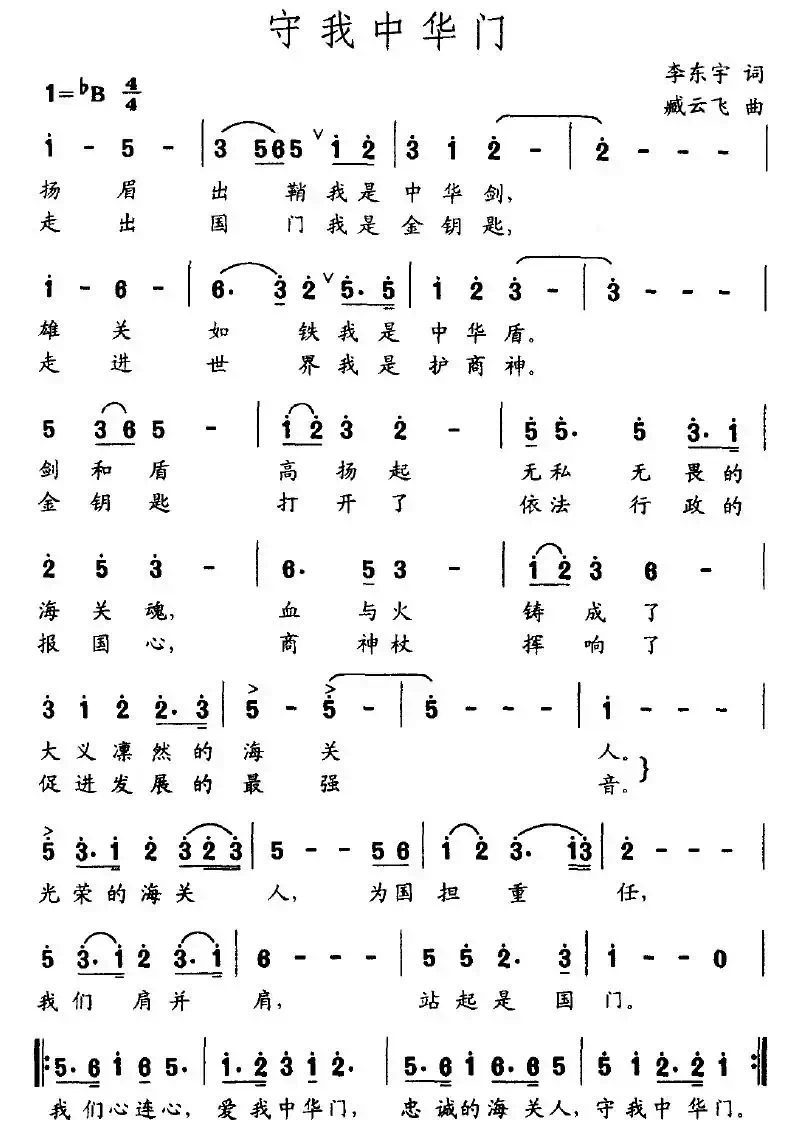 守我中华门
李东宇 词
1=♭B 4/4
臧云飞 曲
i - 5 - | 3 565 ∨ i 2 | 3 i 2 - | 2 - - - |
扬眉出鞘我是中华剑，
走出国门我是金钥匙，
i - 6 - | 6· 3 2 ∨ 5·5 | i 2 3 - | 3 - - - |
雄关如铁我是中华盾。
走进世界我是护商神。
5 36 5 - | i2 3 2 - | 5 5· 5 3·i |
剑和盾高扬起无私无畏的
金钥匙打开了依法行政的
2 5 3 - | 6· 5 3 - | i2 3 6 - |
海关魂，血与火铸成了
报国心，商神杖挥响了
3 i 2 2·3 | 5 - 5 - | 5 - - - | i - - - |
大义凛然的海关人。
促进发展的最强音。}
5 3·i 2 323 | 5 - - 56 | i 2 3· i3 | 2 - - - |
光荣的海关人，为国担重任，
5 3·i 2 3·i | 6 - - - | 5 5 2· 3 | i - - 0 |
我们肩并肩，站起是国门。
‖: 5·6 i 6 5· | i·2 3 i 2· | 6·5 i 6·5 5 | 5 i 2·2 i :‖
我们心连心，爱我中华门，忠诚的海关人，守我中华门。